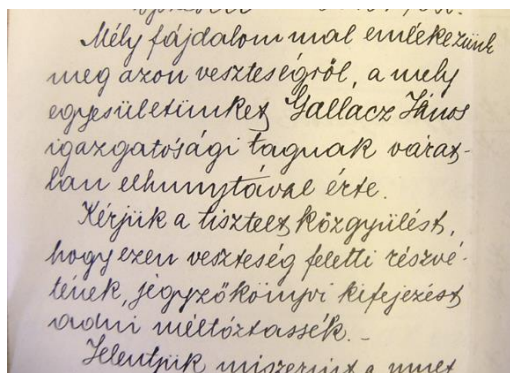 Mély fájdalommal emlékezünk
meg azon veszteségről, a mely
egyesületünket Gallacz János
igazgatósági tagnak várat-
lan elhunytával érte.
Kérjük a tisztelt közgyülést,
hogy ezen veszteség feletti részvé-
tének, jegyzőkönyvi kifejezést
adni méltóztassék. -
Jelentjük miszerint a mult